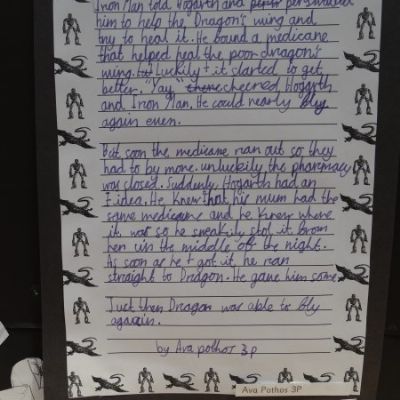 Iron Man told Hogarth and persuaded
him to help the Dragon's wing and
try to heal it. He found a medicane
that helped heal the poor dragon's
wing. Luckily it started to get
better. "Yay" cheered Hogarth
and Iron Man. He could nearly fly
again even.
But soon the medicane ran out so they
had to by more. unluckily the pharmacy
was closed. Suddenly Hogarth had an
idea. He Knew that his mum had the
same medicane and he Knew where
it was so he sneakily stol it from
her in the middle off the night.
As soon as he got it he ran
straight to Dragon. He gave him some
Just then Dragon was able to fly
again.
by Ava pothos 3p
Ava Pothos 3P